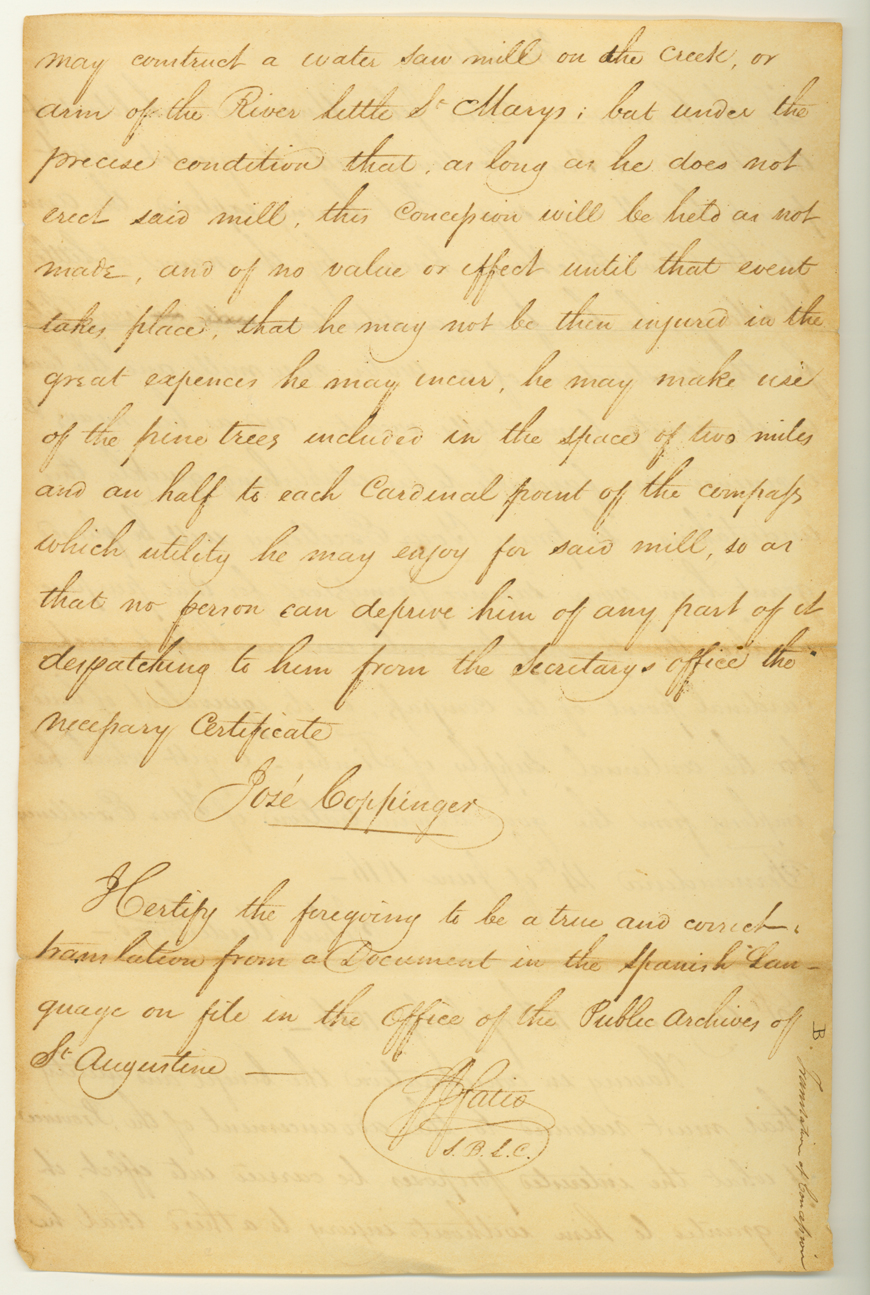 may construct a water saw mill on the creek, or
arm of the River little St Marys; but under the
precise condition that, as long as he does not
erect said mill, this Concession will be held as not
made, and of no value or effect until that event
takes place, that he may not be then injured in the
great expences he may incur, he may make use
of the pine trees included in the space of two miles
and an half to each Cardinal point of the compass
which utility he may enjoy for said mill, so as
that no person can deprive him of any part of it
despatching to him from the Secretarys office the
necessary Certificate
José Coppinger
I Certify the foregoing to be a true and correct
translation from a Document in the Spanish Lan-
guage on file in the Office of the Public Archives of
St Augustine —
Fatio
S.B.L.C.
B. Translation of Concession